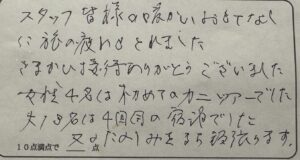 スタッフ皆様の暖かいおもてなし
に旅の疲れもとれました
きまかい接待ありがとうございました
女性4名は初めてのカニツアーでした
夫1名は4回目の宿泊でした
又、たのしみをまち頑張ります。
10点満点で 点